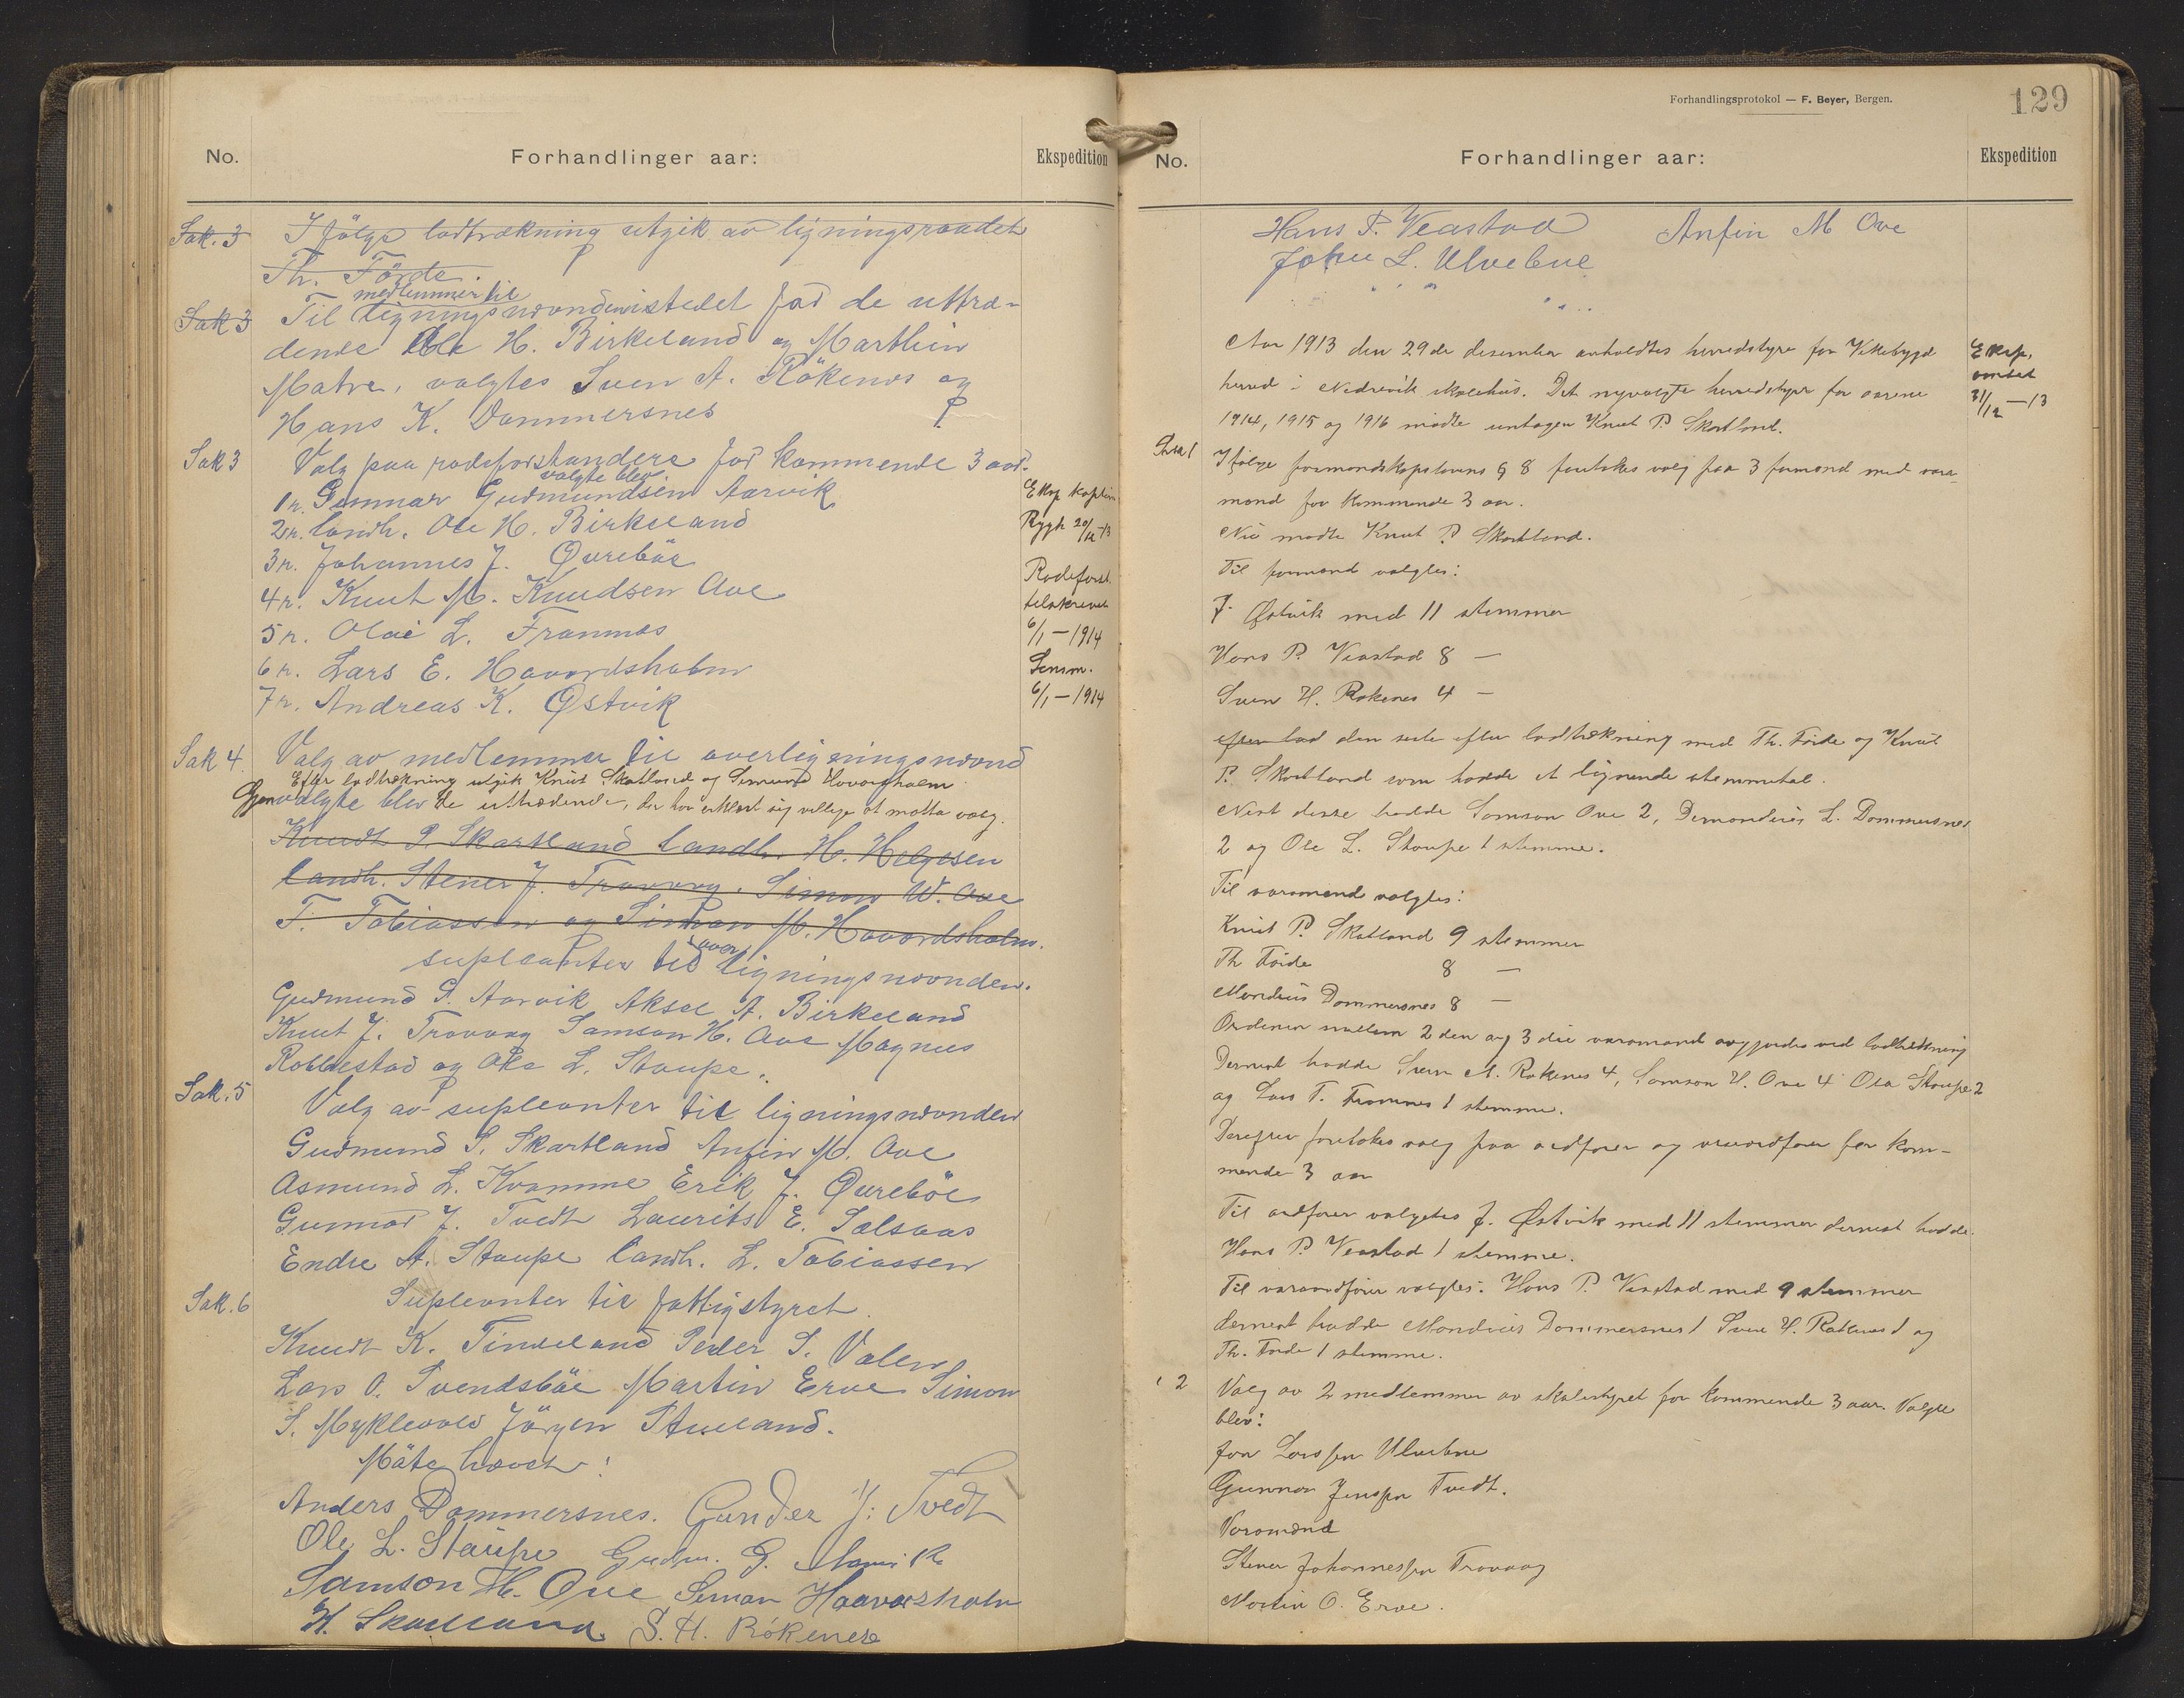 No.
Forhandlinger aar:
Ekspedition
Sak. 3
I følge lodtrækning utgik av ligningsraadet
Th. Förde.
medlemmer til
Sak 3
Til ligningsnævnden istedet for de uttræ-
dende Ole H. Birkeland og Marthin
Matre, valgtes Sven A. Rökenes og
Hans K. Dommersnes
Sak 3
Valg paa rodeforstandere for kommende 3 aar.
valgte blev
1 r. Gunnar Gudmundsen Aarvik
2 r. landh. Ole H. Birkeland
3 r. Johannes J. Øvreböe
4 r. Knut M. Knudsen Ove
5 r. Olai L. Framnes
6 r. Lars E. Haavordsholm
7 r. Andreas K. Østvik
Eksp kaptein
Rygh 20/12-13
Rodeforst.
tilskrevet
6/1 - 1914
Lensm.
6/1 - 1914
Sak 4.
Valg av medlemmer til overligningsnævnd
Efter lodtrækning utgik Knut Skartland og Simon Hovorsholm
Gjenvalgte blev de uttrædende, der har erklært sig villige at motta valg.
Knudt P. Skartland landh. H. Helgesen
landh. Stener J. Trovaag. Simon W. Ove
T. Tobiassen og Simon M. Haavordsholm.
supleanter til over ligningsnævnden.
Gudmund G. Aarvik Aksel A. Birkeland
Knut J. Trovaag Samson H. Ove Magnus
Robberstad og Ole L. Staupe.
Sak. 5
Valg av supleanter til ligningsnævnden
Gudmund S. Skartland Anfin M. Ove
Asmund L. Kvamme Erik J. Øvreböe
Gunnar J. Tvedt Laurits E. Sælsaas
Endre A. Staupe landh. L. Tobiassen
Sak. 6
Supleanter til fattigstyret.
Knudt K. Tindeland Peder S. Valen
Lars O. Svendsböe Martin Erve Simon
S. Myklevold Jörgen Stueland.
Möte hævet:
Anders Dommersnes. Gunder J. Tvedt
Ole L. Staupe Gudm. G. Aarvik
Samson H. Ove Seman Haavorsholm
K. Skartland S. H. Rökenes
Forhandlingsprotokol — F. Beyer, Bergen.
129
No.
Forhandlinger aar:
Ekspedition
Hans P. Veastad Anfin M Ove
John L. Ulvebne
Aar 1913 den 29de desember avholdtes herredstyre for Vikebygd
herred i Nedrevik skolehus. Det nyvalgte herredstyre for aarene
1914, 1915 og 1916 mødte untagen Knut P. Skartland.
Eksp.
amtet
31/12 - 13
Sak 1
Ifølge formandskapslovens § 8 foretokes valg paa 3 formænd med vara-
mænd for kommende 3 aar.
Nu mødte Knut P. Skartland.
Til formænd valgtes:
J. Østvik med 11 stemmer
Hans P. Veastad 8 —
Sven H. Røkenes 4 —
efter lod den siste efter lodtrækning med Th. Førde og Knut
P. Skartland som hadde et lignende stemmetal.
Nest disse hadde Samson Ove 2, L. Dommersnes
2 og Ole L. Staupe 1 stemme.
Til varamænd valgtes:
Knut P. Skatland 9 stemmer
Th Førde 8 —
Mandius Dommersnes 8 —
Ordenen mellem 2den og 3die varamand avgjordes ved lodtrekning
Dernest hadde Sven H. Røkenes 4, Samson H. Ove 4 Ola Staupe 2
og Lars T. Framnes 1 stemme.
Derefter foretokes valg paa ordfører og viseordfører for kom-
mende 3 aar
Til ordfører valgtes J. Østvik med 11 stemmer dernest hadde
Hans P. Veastad 1 stemme.
Til varaordfører valgtes: Hans P. Veastad med 9 stemmer
dernest hadde Mandius Dommersnes 1 Sven H. Røkenes 1 og
Th. Førde 1 stemme.
" 2
Valg av 2 medlemmer av skolestyret for kommende 3 aar. Valgte
blev:
Jon Larssen Ulvebne
Gunnar Jenssen Tvedt.
Varamænd
Stener Johannessen Trovaag
Martin O. Erve.